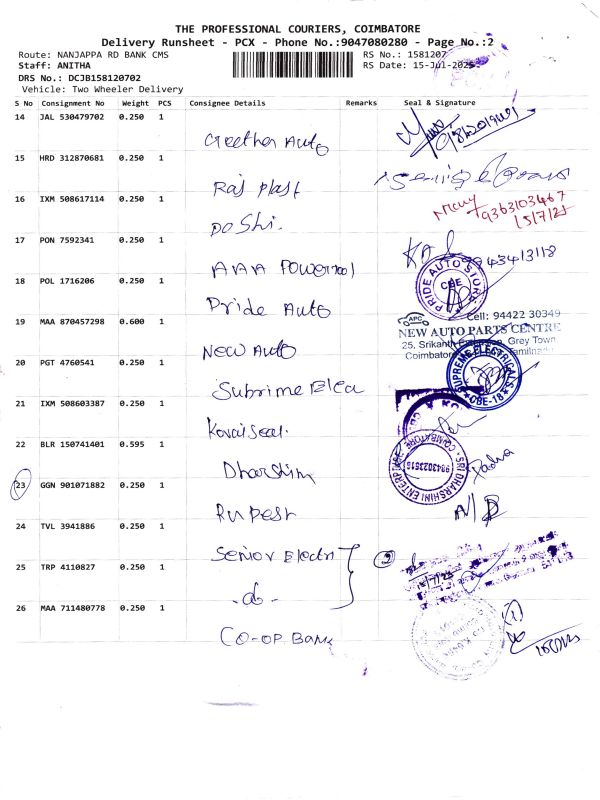 THE PROFESSIONAL COURIERS, COIMBATORE
Delivery Runsheet - PCX - Phone No.:9047080280 - Page No.:2
Route: NANJAPPA RD BANK CMS
RS No.: 1581207
Staff: ANITHA
RS Date: 15-Jul-2025
DRS No.: DCJB158120702
Vehicle: Two Wheeler Delivery
S No Consignment No Weight PCS Consignee Details Remarks Seal & Signature
14 JAL 530479702 0.250 1
Geetha Auto
15 HRD 312870681 0.250 1
Raj Plast
16 IXM 508617114 0.250 1
9363103467
15/7/25
Doshi.
17 PON 7592341 0.250 1
AAA Powerool
18 POL 1716206 0.250 1
PRIDE AUTO STORE
CBE
Pride Auto
19 MAA 870457298 0.600 1
Cell: 94422 30349
NEW AUTO PARTS CENTRE
25, Srikanth Grey Town
Coimbatore Tamilnadu
New Auto
20 PGT 4760541 0.250 1
SUPREME ELECTRICALS
CBE-18
Subrime Elea
21 IXM 508603387 0.250 1
Kovai Seal.
22 BLR 150741401 0.595 1
SRI DHARSHINI ENTERPRISE
COIMBATORE
9843023515
Padma
Dharshini
23 GGN 901071882 0.250 1
Rupesh
24 TVL 3941886 0.250 1
Senior Electri
2
25 TRP 4110827 0.250 1
-do-
26 MAA 711480778 0.250 1
Co-op Bank